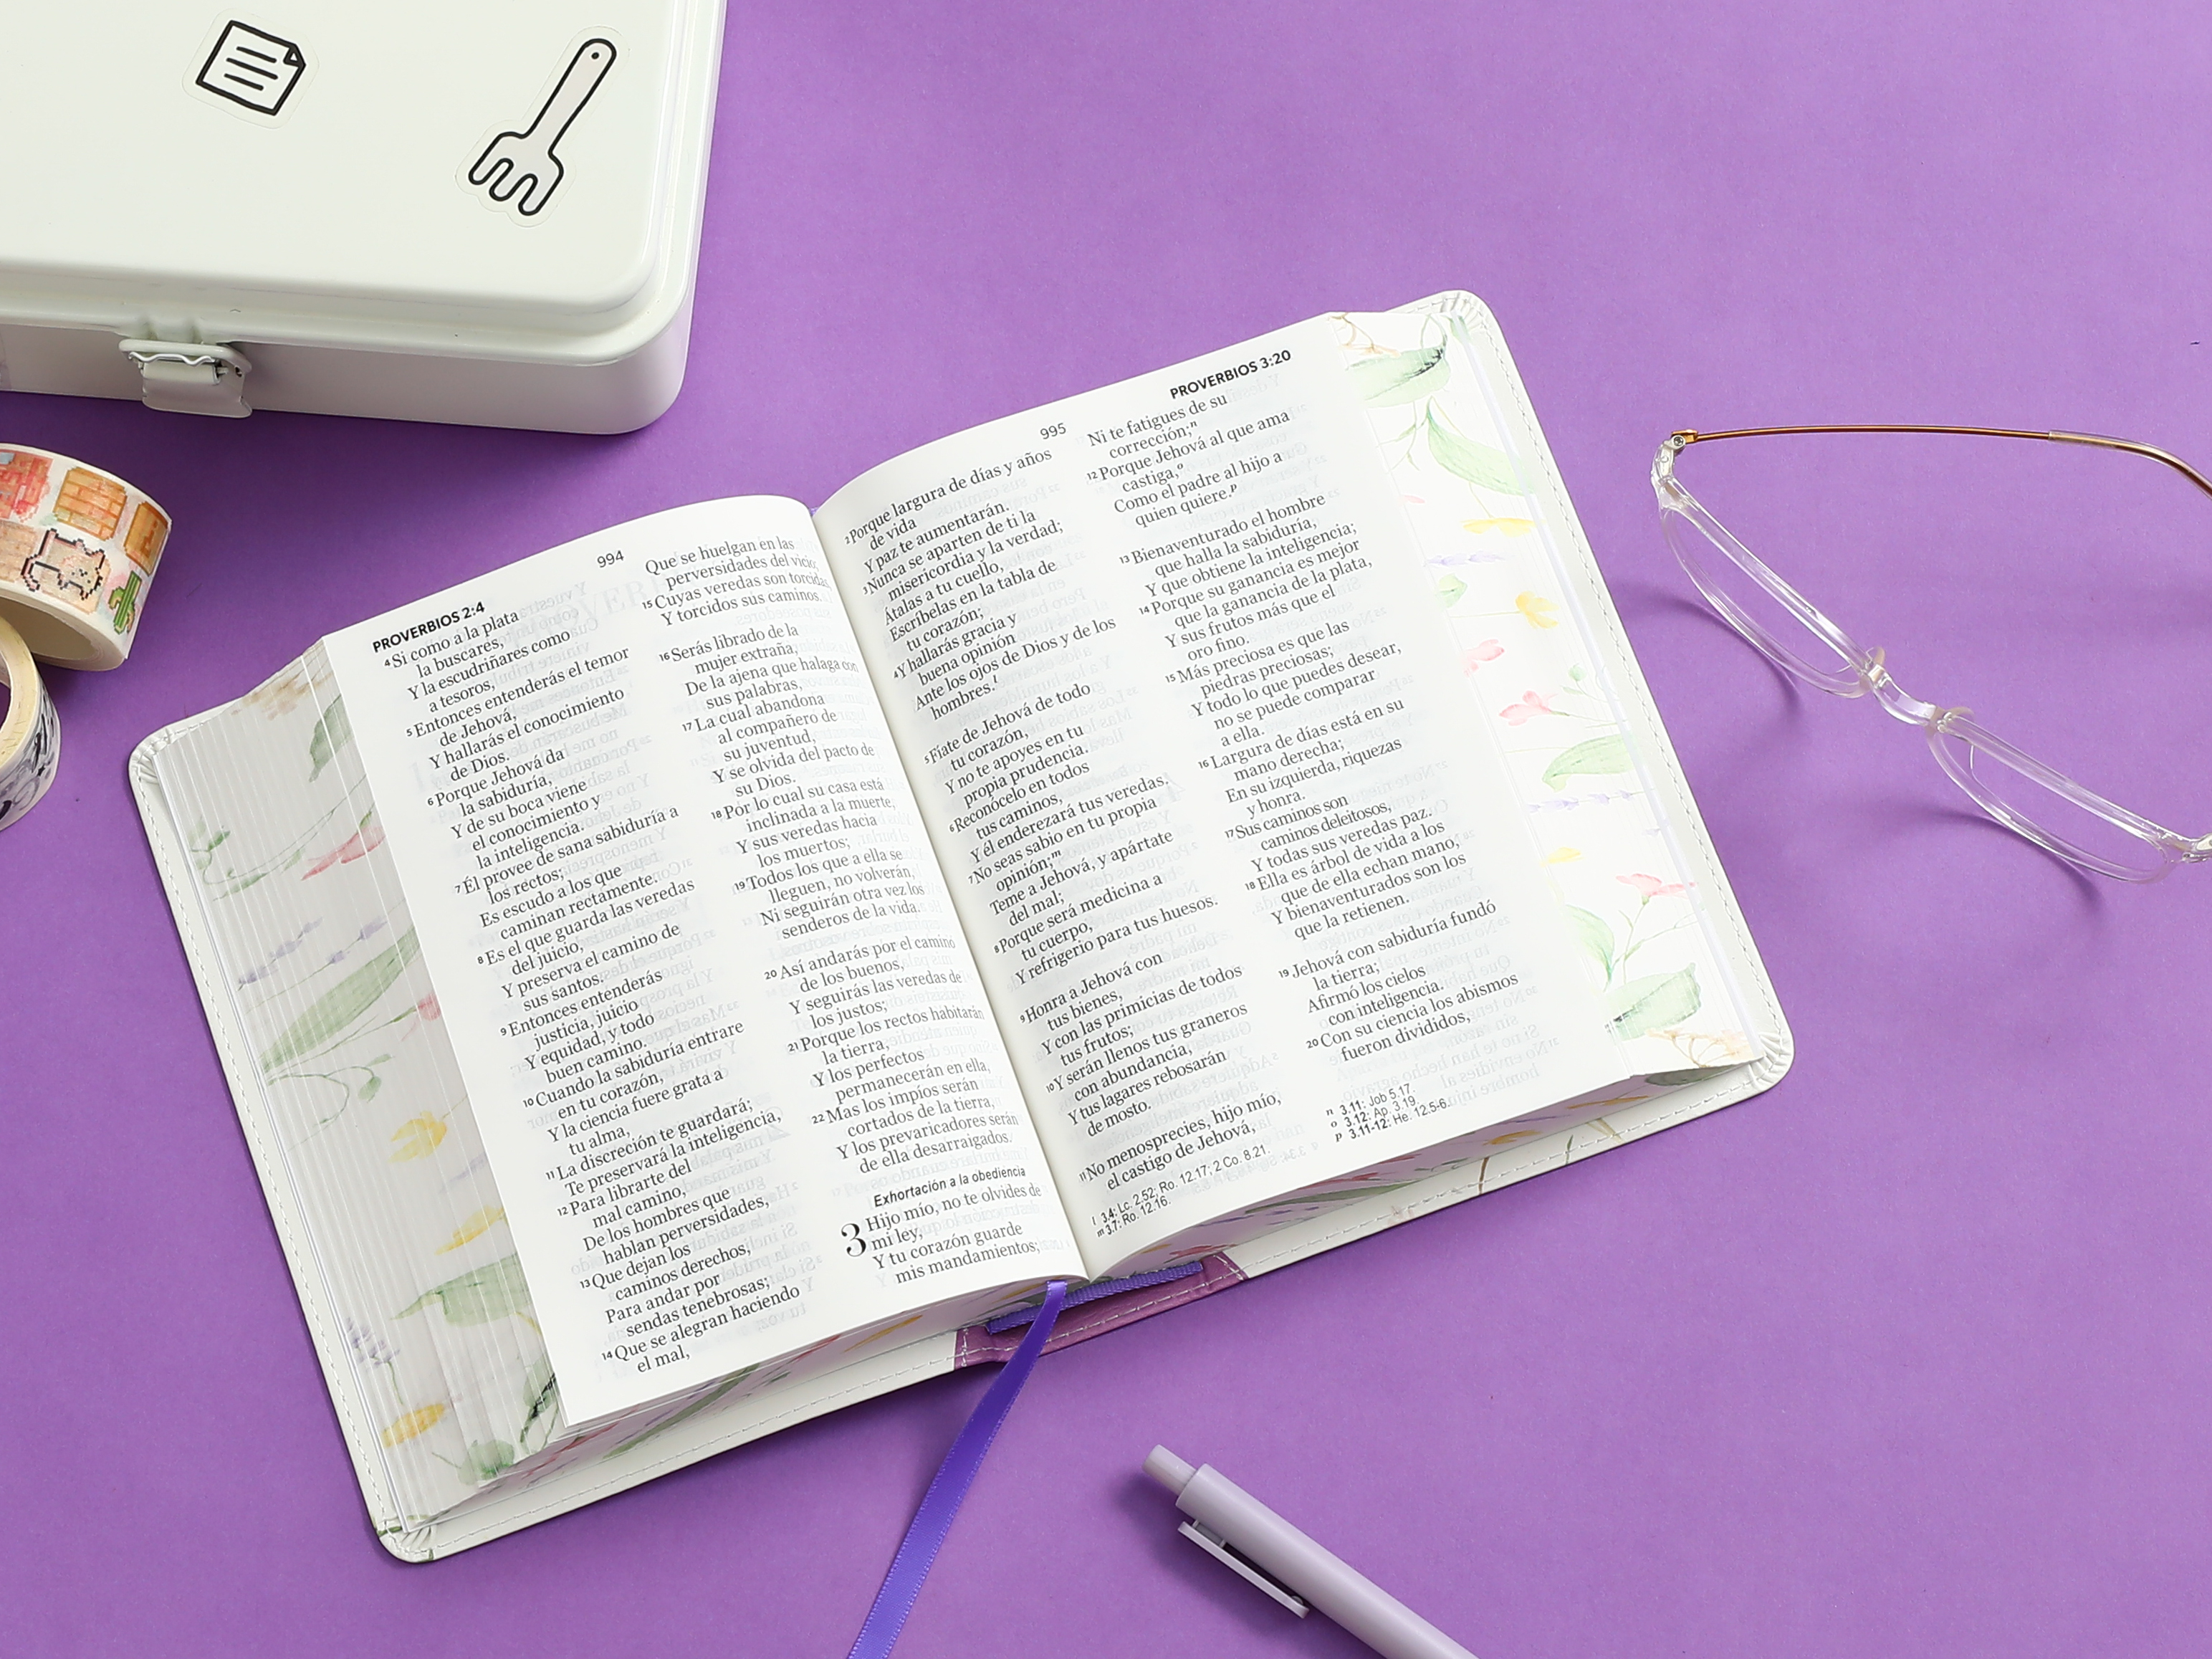 994
PROVERBIOS 2:4
4 Si como a la plata
la buscares,
Y la escudriñares como
a tesoros,
5 Entonces entenderás el temor
de Jehová,
Y hallarás el conocimiento
de Dios.
6 Porque Jehová da
la sabiduría,
Y de su boca viene
el conocimiento y
la inteligencia.
7 Él provee de sana sabiduría a
los rectos;
Es escudo a los que
caminan rectamente.
8 Es el que guarda las veredas
del juicio,
Y preserva el camino de
sus santos.
9 Entonces entenderás
justicia, juicio
Y equidad, y todo
buen camino.
10 Cuando la sabiduría entrare
en tu corazón,
Y la ciencia fuere grata a
tu alma,
11 La discreción te guardará;
Te preservará la inteligencia,
12 Para librarte del
mal camino,
De los hombres que
hablan perversidades,
13 Que dejan los
caminos derechos,
Para andar por
sendas tenebrosas;
14 Que se alegran haciendo
el mal,
Que se huelgan en las
perversidades del vicio;
15 Cuyas veredas son torcidas,
Y torcidos sus caminos.
16 Serás librado de la
mujer extraña,
De la ajena que halaga con
sus palabras,
17 La cual abandona
al compañero de
su juventud,
Y se olvida del pacto de
su Dios.
18 Por lo cual su casa está
inclinada a la muerte,
Y sus veredas hacia
los muertos;
19 Todos los que a ella se
lleguen, no volverán,
Ni seguirán otra vez los
senderos de la vida.
20 Así andarás por el camino
de los buenos,
Y seguirás las veredas de
los justos;
21 Porque los rectos habitarán
la tierra,
Y los perfectos
permanecerán en ella,
22 Mas los impíos serán
cortados de la tierra,
Y los prevaricadores serán
de ella desarraigados.
Exhortación a la obediencia
3 Hijo mío, no te olvides de
mi ley,
Y tu corazón guarde
mis mandamientos;
995
PROVERBIOS 3:20
2 Porque largura de días y años
de vida
Y paz te aumentarán.
3 Nunca se aparten de ti la
misericordia y la verdad;
Átalas a tu cuello,
Escríbelas en la tabla de
tu corazón;
4 Y hallarás gracia y
buena opinión
Ante los ojos de Dios y de los
hombres.l
5 Fíate de Jehová de todo
tu corazón,
Y no te apoyes en tu
propia prudencia.
6 Reconócelo en todos
tus caminos,
Y él enderezará tus veredas.
7 No seas sabio en tu propia
opinión;m
Teme a Jehová, y apártate
del mal;
8 Porque será medicina a
tu cuerpo,
Y refrigerio para tus huesos.
9 Honra a Jehová con
tus bienes,
Y con las primicias de todos
tus frutos;
10 Y serán llenos tus graneros
con abundancia,
Y tus lagares rebosarán
de mosto.
11 No menosprecies, hijo mío,
el castigo de Jehová,
l 3.4: Lc. 2.52; Ro. 12.17; 2 Co. 8.21.
m 3.7: Ro. 12.16.
Ni te fatigues de su
corrección;n
12 Porque Jehová al que ama
castiga,o
Como el padre al hijo a
quien quiere.p
13 Bienaventurado el hombre
que halla la sabiduría,
Y que obtiene la inteligencia;
14 Porque su ganancia es mejor
que la ganancia de la plata,
Y sus frutos más que el
oro fino.
15 Más preciosa es que las
piedras preciosas;
Y todo lo que puedes desear,
no se puede comparar
a ella.
16 Largura de días está en su
mano derecha;
En su izquierda, riquezas
y honra.
17 Sus caminos son
caminos deleitosos,
Y todas sus veredas paz.
18 Ella es árbol de vida a los
que de ella echan mano,
Y bienaventurados son los
que la retienen.
19 Jehová con sabiduría fundó
la tierra;
Afirmó los cielos
con inteligencia.
20 Con su ciencia los abismos
fueron divididos,
n 3.11: Job 5.17.
o 3.12: Ap. 3.19.
p 3.11-12: He. 12.5-6.